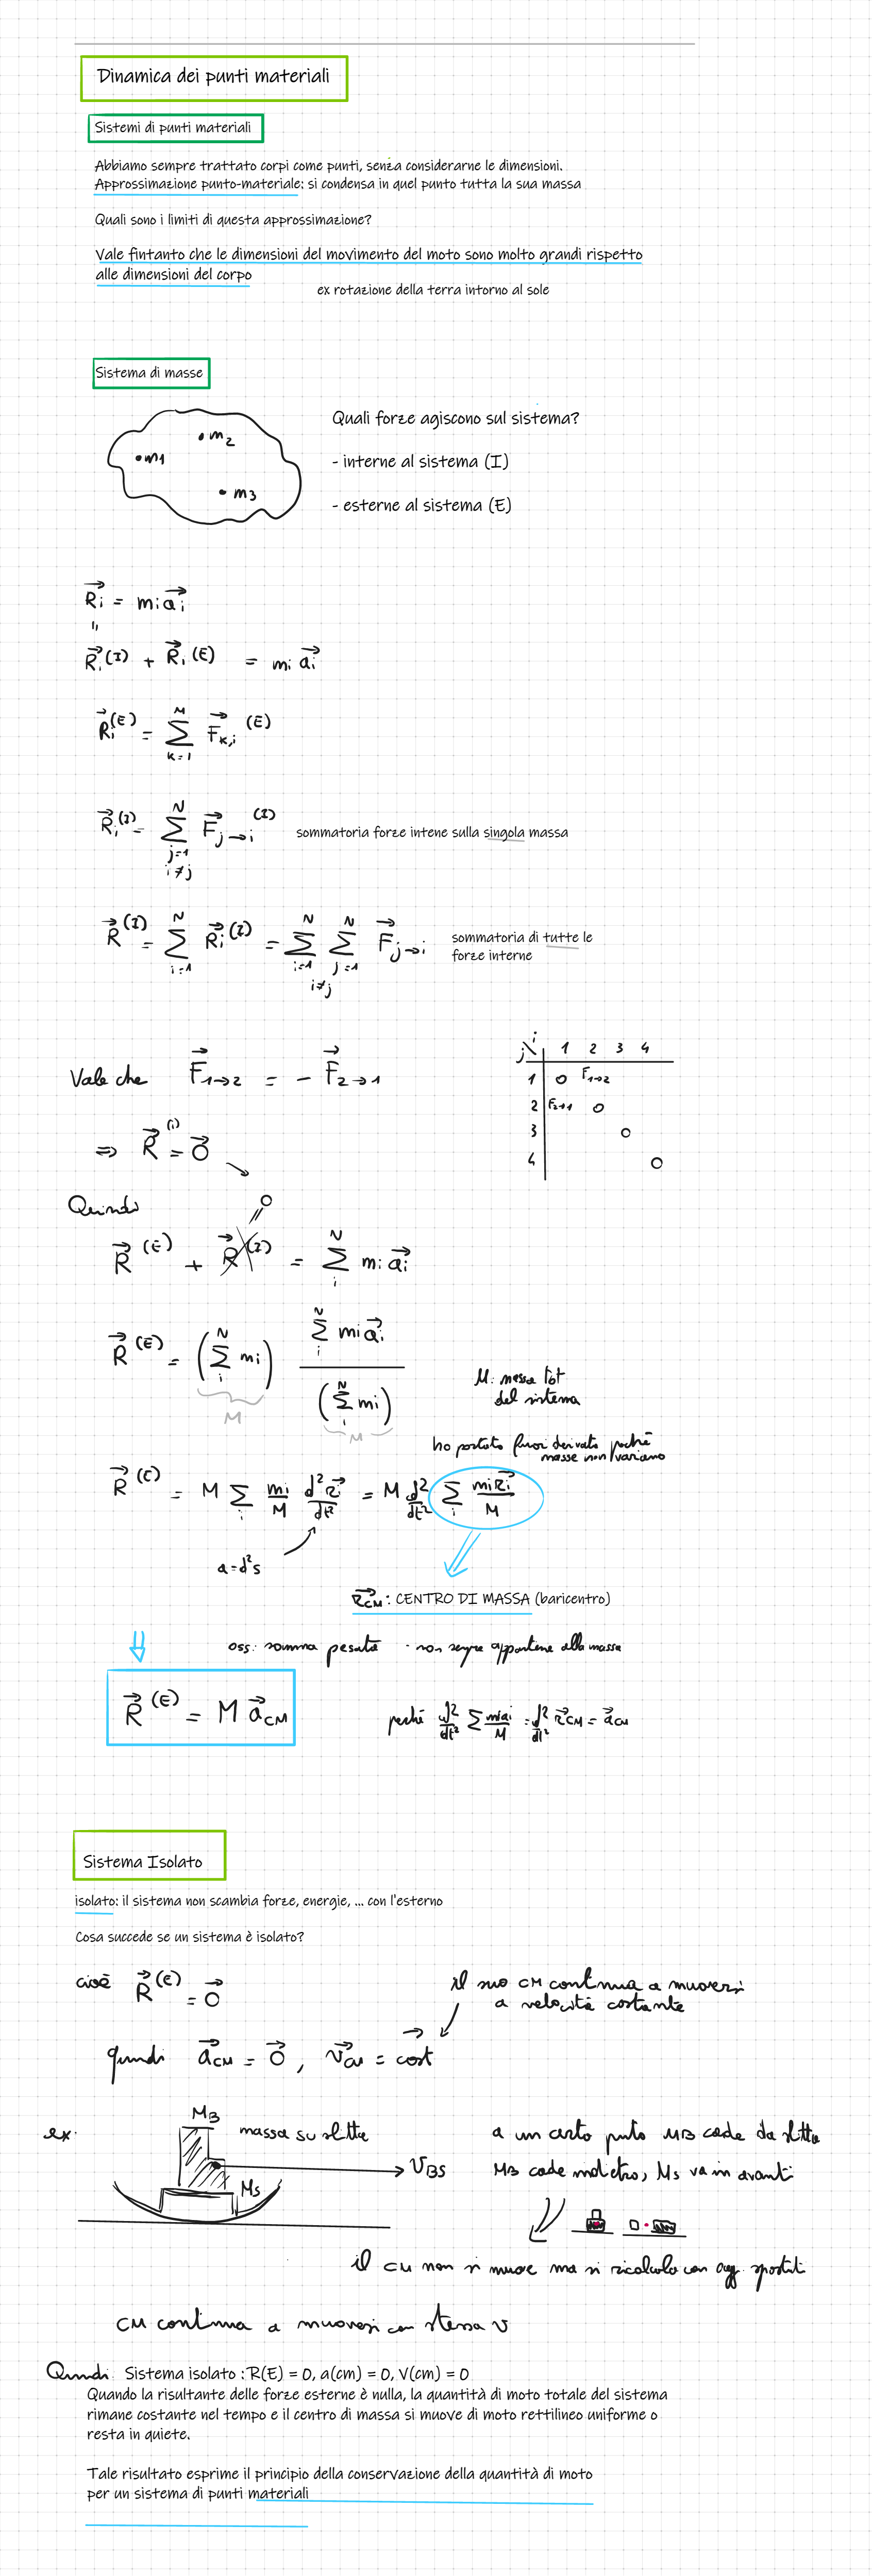 Dinamica dei punti materiali
Sistemi di punti materiali
Abbiamo sempre trattato corpi come punti, senza considerarne le dimensioni.
Approssimazione punto-materiale: si condensa in quel punto tutta la sua massa
Quali sono i limiti di questa approssimazione?
Vale fintanto che le dimensioni del movimento del moto sono molto grandi rispetto
alle dimensioni del corpo
ex rotazione della terra intorno al sole
Sistema di masse
m1 m2 m3
Quali forze agiscono sul sistema?
- interne al sistema (I)
- esterne al sistema (E)
R⃗i = mi a⃗i
"
R⃗i(I) + R⃗i(E) = mi a⃗i
R⃗i(E) = ∑ k=1 M F⃗k,i (E)
R⃗i(I) = ∑ j=1 i≠j N F⃗j→i (I) sommatoria forze intene sulla singola massa
R⃗(I) = ∑ i=1 N R⃗i(I) = ∑ i=1 N ∑ j=1 N i≠j F⃗j→i
sommatoria di tutte le
forze interne
Vale che F⃗1→2 = - F⃗2→1
j\i 1 2 3 4
1 0 F1→2
2 F2→1 0
3 0
4 0
⇒ R⃗(I) = 0⃗
Quindi
0
R⃗(E) + R⃗(I) = ∑ i N mi a⃗i
R⃗(E) = (∑ i N mi) ∑ i N mi a⃗i / (∑ i N mi)
M M
M: massa tot
del sistema
ho portato fuori derivata poiché
masse non variano
R⃗(E) = M ∑ i mi/M d²r⃗i/dt² = M d²/dt² ∑ i mi r⃗i/M
a = d²s
r⃗CM : CENTRO DI MASSA (baricentro)
oss: somma pesata - non sempre appartiene alla massa
R⃗(E) = M a⃗CM
perché d²/dt² ∑ mi ai/M = d²/dt² r⃗CM = a⃗CM
Sistema Isolato
isolato: il sistema non scambia forze, energie, ... con l'esterno
Cosa succede se un sistema è isolato?
cioè R⃗(E) = 0⃗
il suo CM continua a muoversi
a velocità costante
quindi a⃗CM = 0⃗ , v⃗CM = cost
ex:
MB
massa su slitta
vBS
MS
a un certo punto MB cade da slitta
MB cade indietro, MS va in avanti
il CM non si muove ma si ricalcola con ogg. spostati
CM continua a muoversi con stessa v
Quindi Sistema isolato : R(E) = 0, a(cm) = 0, V(cm) = 0
Quando la risultante delle forze esterne è nulla, la quantità di moto totale del sistema
rimane costante nel tempo e il centro di massa si muove di moto rettilineo uniforme o
resta in quiete.
Tale risultato esprime il principio della conservazione della quantità di moto
per un sistema di punti materiali